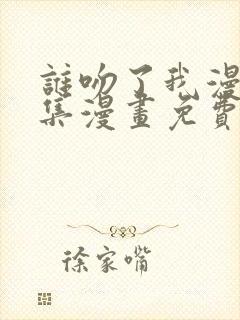 誰吻了我漫
集漫畫免費
徐家嘴